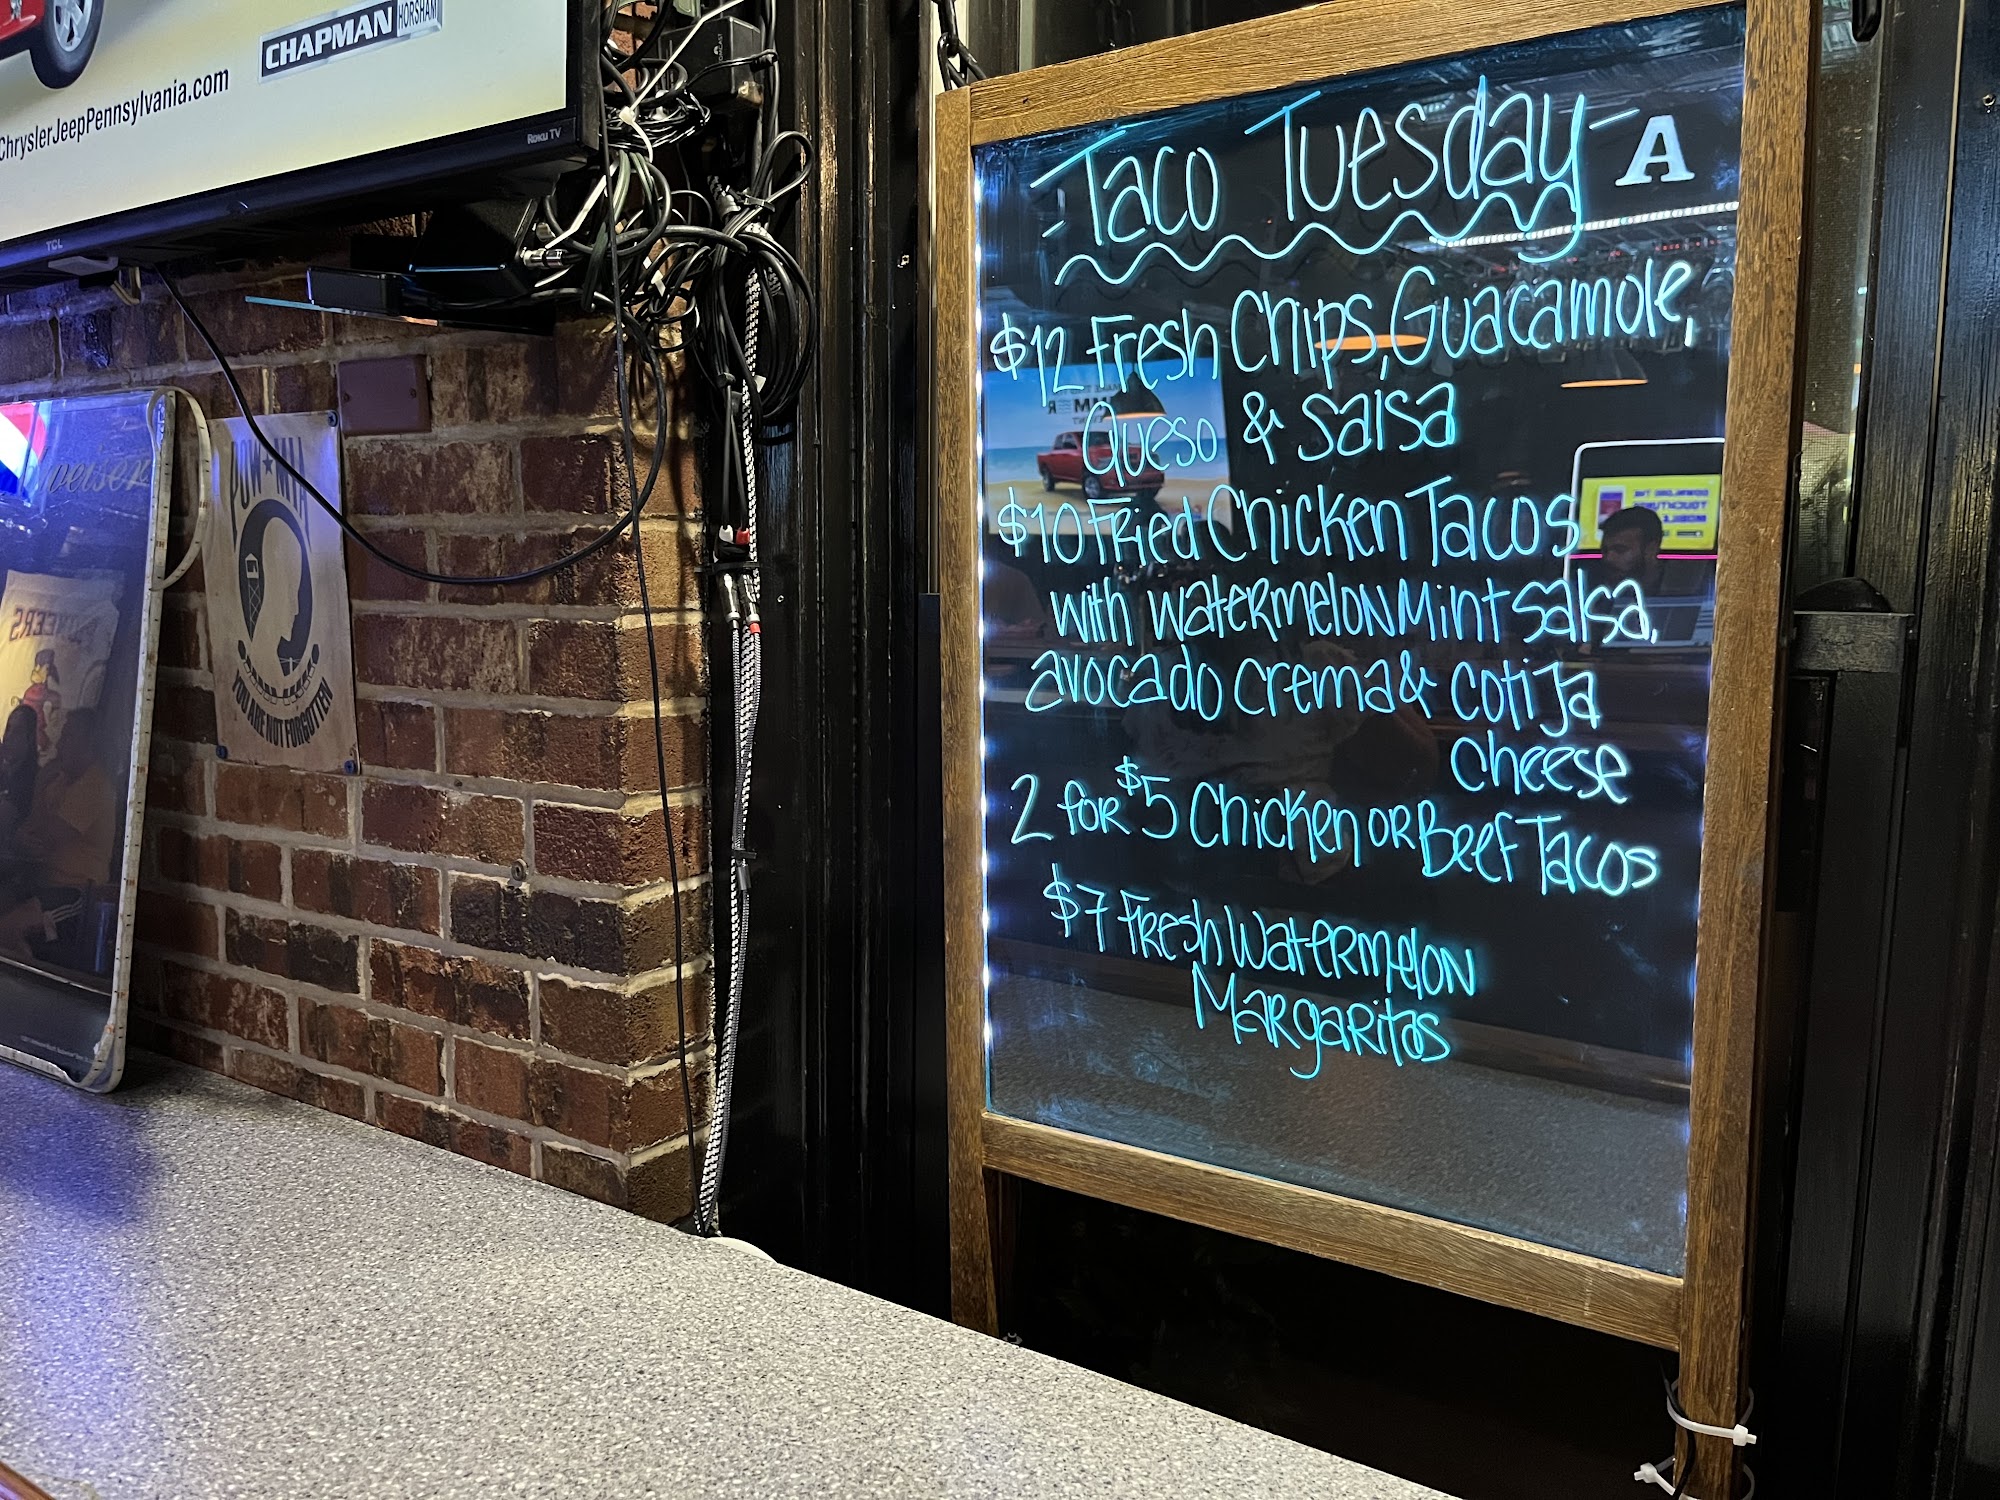 CHAPMAN HORSHAM
ChryslerJeepPennsylvania.com
Roku TV
TCL
POW★MIA
YOU ARE NOT FORGOTTEN
-Taco Tuesday- A
$12 Fresh Chips, Guacamole,
Queso & Salsa
$10 Fried Chicken Tacos
with watermelon Mint Salsa,
avocado crema & cotija
cheese
2 for $5 Chicken or Beef Tacos
$7 Fresh Watermelon
Margaritas